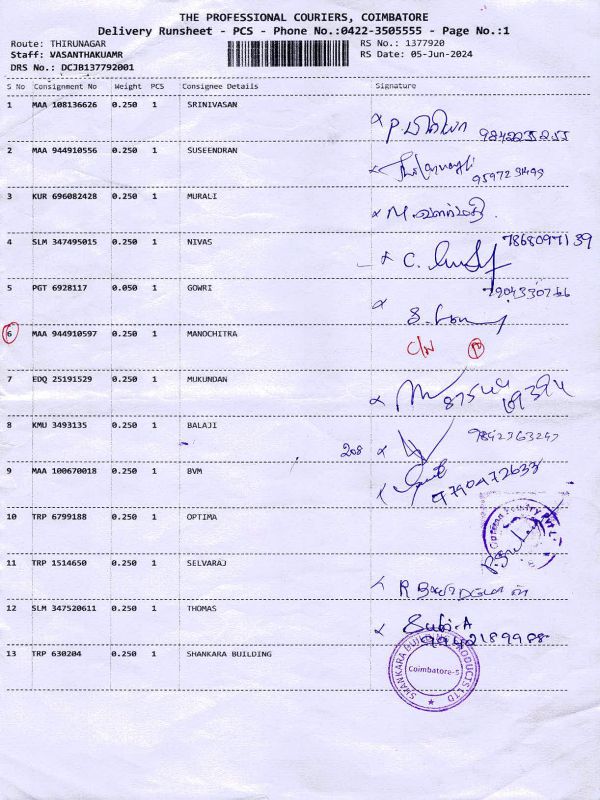 THE PROFESSIONAL COURIERS, COIMBATORE
Delivery Runsheet - PCS - Phone No.:0422-3505555 - Page No.:1
Route: THIRUNAGAR RS No.: 1377920
Staff: VASANTHAKUAMR RS Date: 05-Jun-2024
DRS No.: DCJB137792001
S No Consignment No Weight PCS Consignee Details Signature
1 MAA 108136626 0.250 1 SRINIVASAN
9842235255
2 MAA 944910556 0.250 1 SUSEENDRAN
3 KUR 696082428 0.250 1 MURALI
4 SLM 347495015 0.250 1 NIVAS
7868097139
5 PGT 6928117 0.050 1 GOWRI
7904330766
6 MAA 944910597 0.250 1 MANOCHITRA
C/N
7 EDQ 25191529 0.250 1 MUKUNDAN
8 KMU 3493135 0.250 1 BALAJI
9842363247
208
9 MAA 100670018 0.250 1 BVM
9790472633
10 TRP 6799188 0.250 1 OPTIMA
11 TRP 1514650 0.250 1 SELVARAJ
12 SLM 347520611 0.250 1 THOMAS
Subi.A
9442189988
13 TRP 630204 0.250 1 SHANKARA BUILDING
SHANKARA BUILDING PRODUCTS LTD
Coimbatore-5